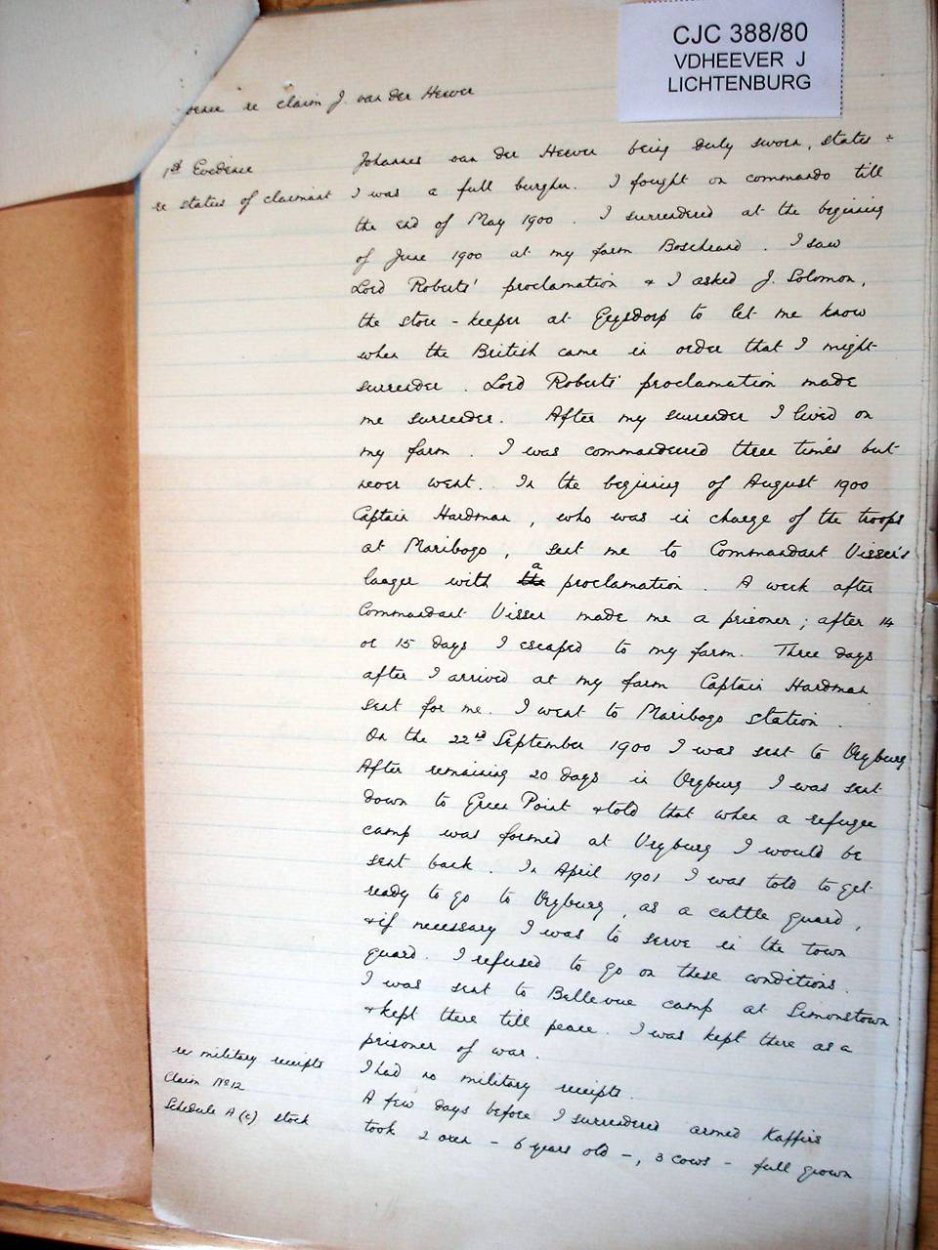 CJC 388/80
VDHEEVER J
LICHTENBURG
re claim J. van der Hewer
1st Evidence
re status of claimant
Johannes van der Hewer being duly sworn, states :-
I was a full burgher. I fought on commando till
the end of May 1900. I surrendered at the begining
of June 1900 at my farm Boschrand. I saw
Lord Roberts' proclamation & I asked J. Solomon,
the store-keeper at Geysdorp to let me know
when the British came in order that I might
surrender. Lord Roberts proclamation made
me surrender. After my surrender I lived on
my farm. I was commandeered three times but
never went. In the begining of August 1900
Captain Hardman, who was in charge of the troops
at Maribogo, sent me to Commandant Visser's
laager with a proclamation. A week after
Commandant Visser made me a prisoner; after 14
or 15 days I escaped to my farm. Three days
after I arrived at my farm Captain Hardman
sent for me. I went to Maribogo station.
On the 22nd September 1900 I was sent to Vryburg
After remaining 20 days in Vryburg I was sent
down to Green Point & told that when a refugee
camp was formed at Vryburg I would be
sent back. In April 1901 I was told to get
ready to go to Vryburg, as a cattle guard,
& if necessary I was to serve in the town
guard. I refused to go on these conditions.
I was sent to Bellevue camp at Simonstown
& kept there till peace. I was kept there as a
prisoner of war.
re military receipts
I had no military receipts.
Claim No 12
Schedule A (c) stock
A few days before I surrendered armed Kaffirs
took 2 oxen - 6 years old -, 3 cows - full grown